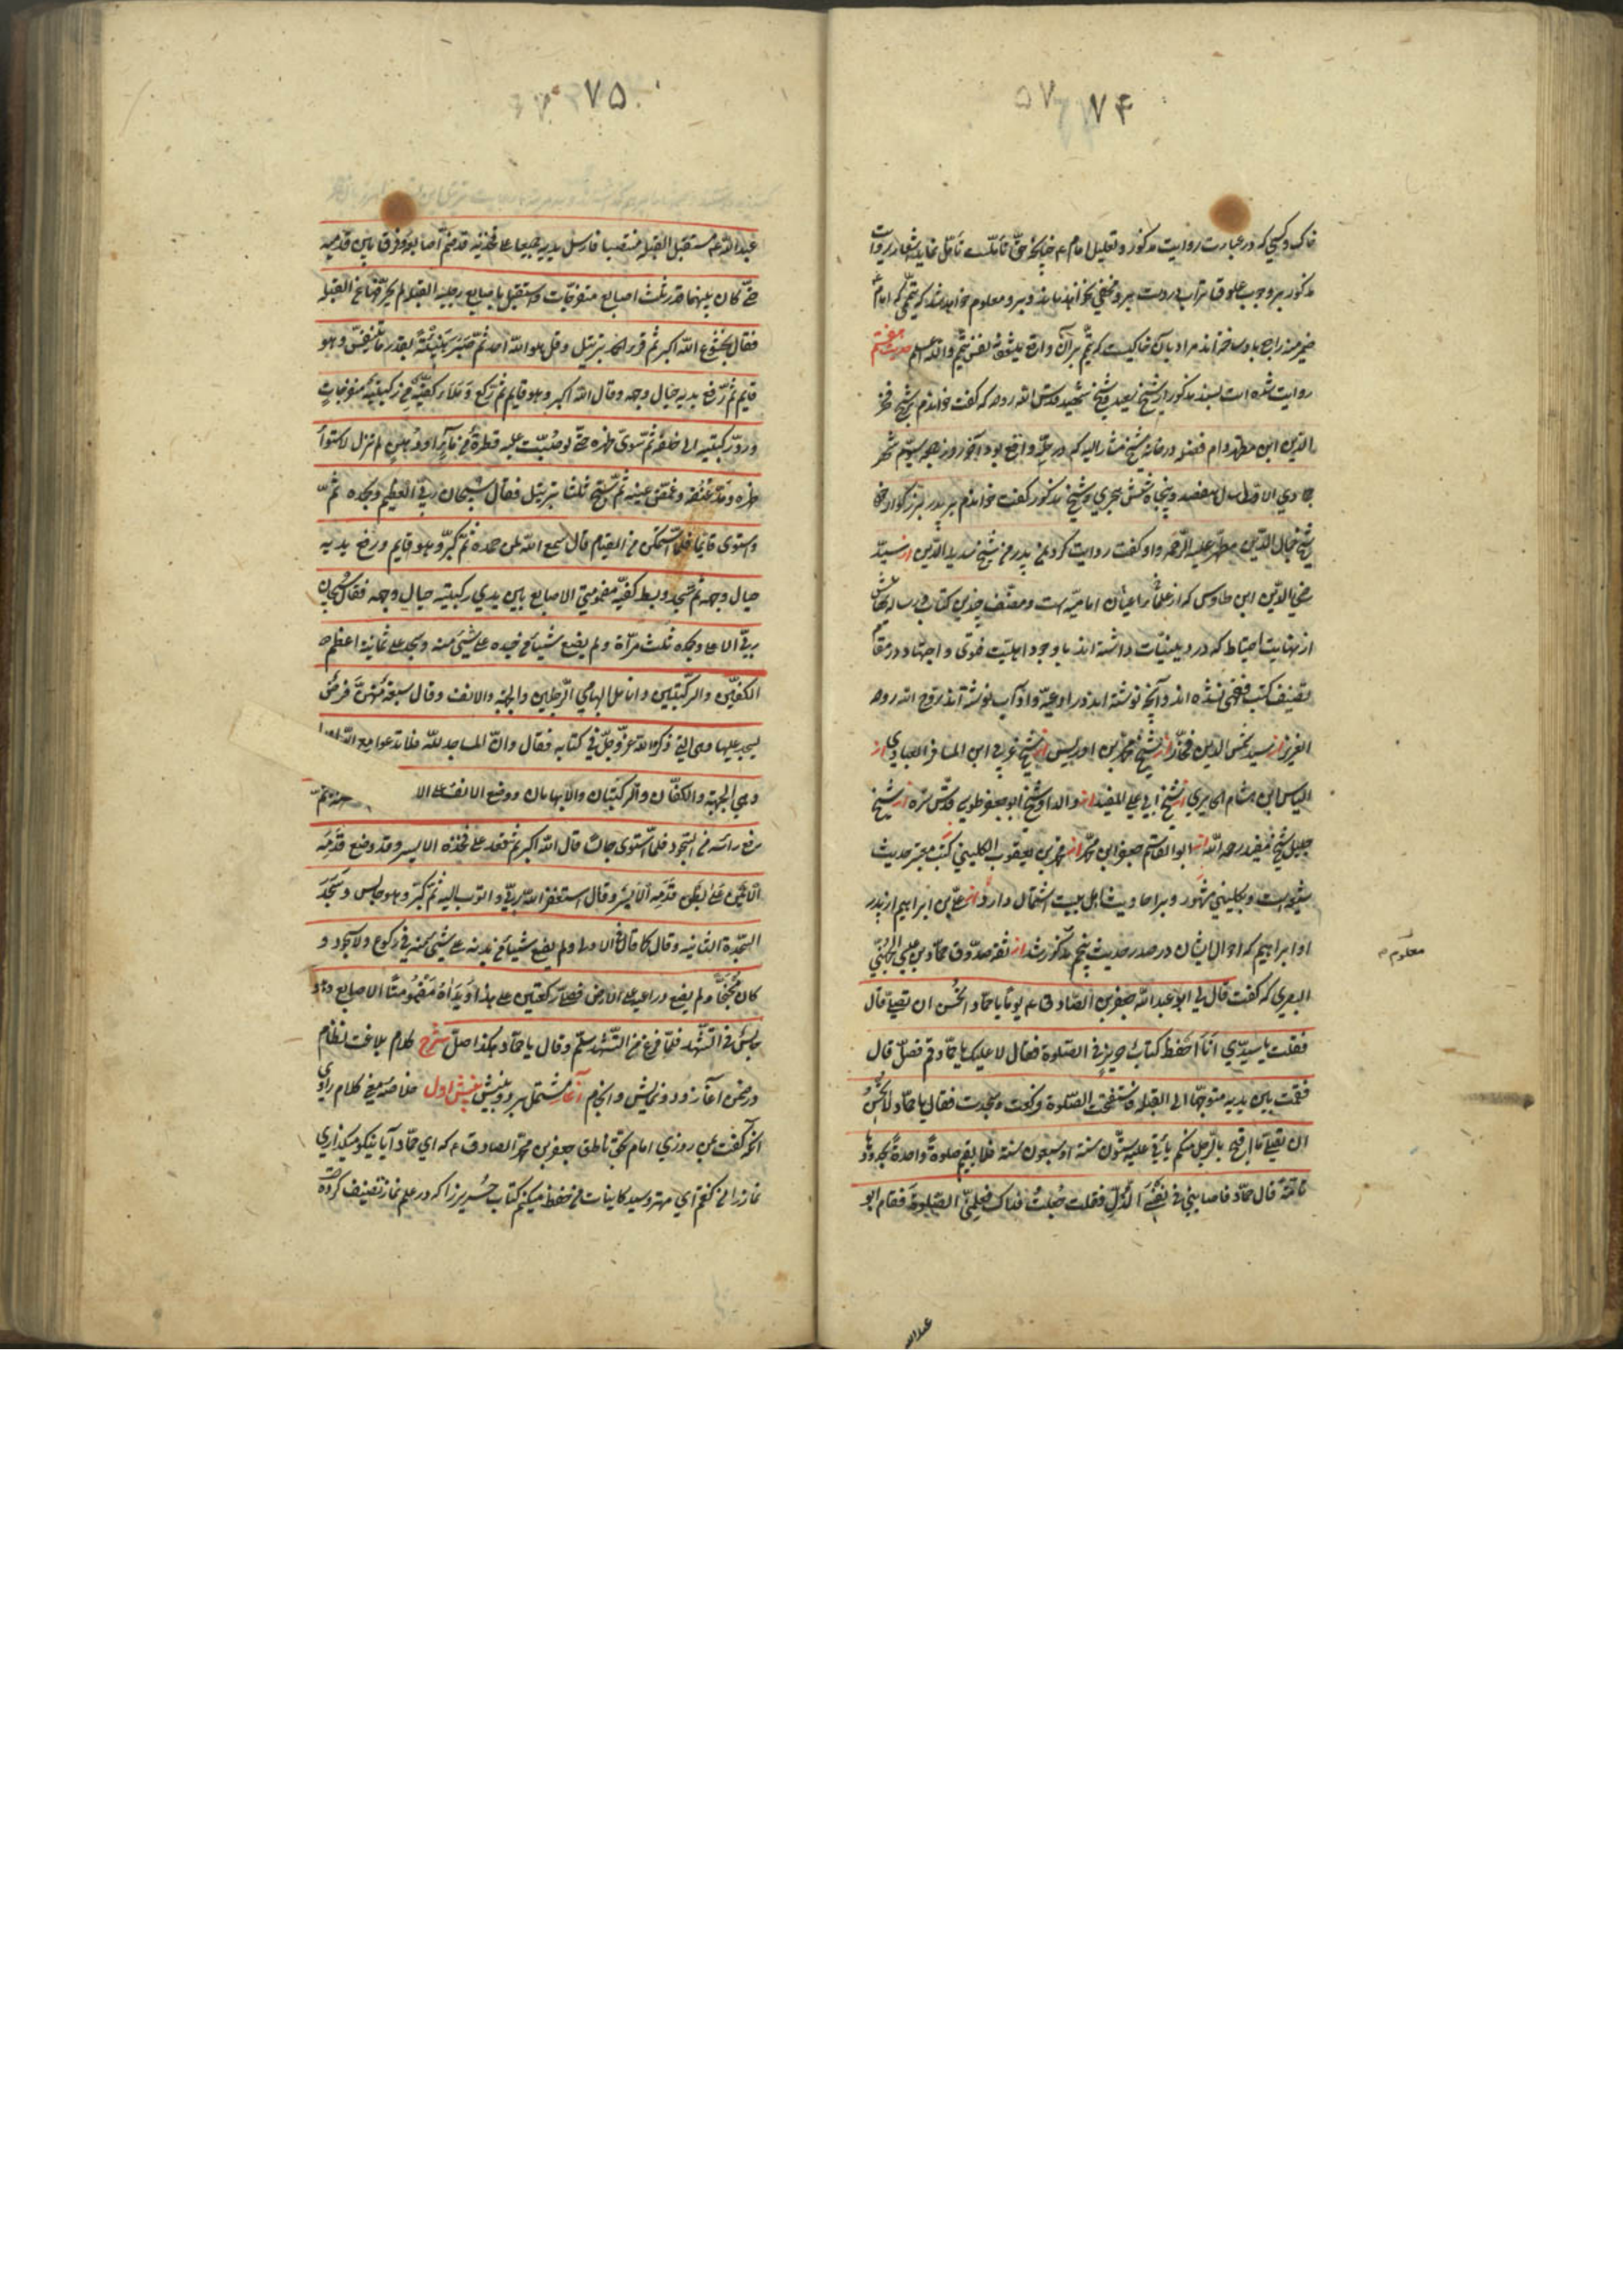 ۷۴
خاک و کسی که در عبارت روایت مذکور و تعلیل امام ع چنانچه حق تأمل است تأمل نماید اشعار روایت
مذکور بر وجوب علوق تراب بر دست برو مخفی نخواهد ماند و برو معلوم خواهد شد که تیممی که امام
ضمیر منه راجع باو ساخته اند مراد بآن خاکیست که تیمم بر آن واقع میشود نه نفس تیمم والله اعلم حدیث هفتم
روایت شده است بسند مذکور از شیخ سعید شیخ شهید قدس الله روحه که گفت خواندم بر شیخ فخر
الدین ابن مطهر دام فضله در خانه شیخ مشار الیه که در حله واقع بود آخر روز جمعه سیوم شهر
جمادی الاولی سال هفتصد و پنجاه شش هجری و شیخ مذکور گفت خواندم بر پدر بزرگوار خود
شیخ جمال الدین مطهر علیه الرحمه و او گفت روایت کرد بمن پدر من شیخ سدید الدین از سید
رضی الدین ابن طاوس که از علما و اعیان امامیه است و مصنف چندین کتاب و رساله
از نهایت احتیاط که در دینیات داشته اند با وجود اهلیت فتوی و اجتهاد در مقام
تصنیف کتب فقهی نشده اند و آنچه نوشته اند در ادعیه و آداب نوشته اند روح الله روحه
العزیز از سید شمس الدین فخار از شیخ محمد بن ادریس از شیخ عربی ابن المسافر العبادی از
الیاس ابن هشام الحایری از شیخ ابی علی المفید از والد او شیخ ابو جعفر طوسی قدس سره از شیخ
جلیل شیخ مفید رحمه الله از ابو القاسم جعفر ابن محمد از محمد بن یعقوب الکلینی کتب معتبر حدیث
شیعه است و بکلینی مشهور و بر احادیث اهل بیت اشتمال دارد از علی بن ابراهیم از پدر
او ابراهیم که احوال ایشان در صدر حدیث پنجم مذکور شد از ثقه صدوق حماد بن عیسی الجهنی
البصری که گفت قال لی ابو عبد الله جعفر بن الصادق ع یوما یا حماد اتحسن ان تصلی قال
فقلت یا سیدی انا احفظ کتاب حریز فی الصلوة فقال لا علیک یا حماد قم فصل قال
فقمت بین یدیه متوجها الی القبله فاستفتحت الصلوة و رکعت و سجدت فقال یا حماد لا تحسن
ان تصلی ما اقبح بالرجل منکم یاتی علیه ستون سنة او سبعون سنة فلا یقیم صلوة واحدة بحدودها
تامة قال حماد فاصابنی فی نفسی الذل فقلت جعلت فداک فعلمنی الصلوة فقام ابو
معلوم
عبدالله
۷۵
عبد الله ع مستقبل القبله منتصبا فارسل یدیه جمیعا علی فخذیه قد ضم اصابعه و فرق بین قدمیه
حتی کان بینهما قدر ثلث اصابع منفرجات و استقبل باصابع رجلیه القبله لم یحرفهما عن القبله
فقال بخشوع الله اکبر ثم قرء الحمد بترتیل و قل هو الله احد ثم صبر هنیئة بقدر ما یتنفس و هو
قایم ثم رفع یدیه حیال وجهه و قال الله اکبر و هو قایم ثم رکع و ملأ کفیه من رکبتیه منفرجات
و رد رکبتیه الی خلفه ثم سوی ظهره حتی لو صبت علیه قطرة من ماء او دهن لم تزل لاستواء
ظهره و مد عنقه و غمض عینیه ثم سبح ثلثا بترتیل فقال سبحان ربی العظیم و بحمده ثم
واستوی قایما فلما استمکن من القیام قال سمع الله لمن حمده ثم کبر و هو قایم و رفع یدیه
حیال وجهه ثم سجد و بسط کفیه مضمومتی الاصابع بین یدی رکبتیه حیال وجهه فقال سبحان
ربی الاعلی و بحمده ثلث مراة و لم یضع شیئا من جسده علی شیئ منه و سجد علی ثمانیة اعظم
الکفین و الرکبتین و انامل ابهامی الرجلین و الجبهة و الانف و قال سبعة منهن فرض
یسجد علیها و هی التی ذکرها الله عز و جل فی کتابه فقال و ان المساجد لله فلا تدعوا مع الله احدا
و هی الجبهة و الکفان و الرکبتان و الابهامان و وضع الانف علی الا سنة ثم
رفع راسه من السجود فلما استوی جالسا قال الله اکبر ثم قعد علی فخذه الایسر و قد وضع قدمه
الایمن علی بطن قدمه الایسر و قال استغفر الله ربی و اتوب الیه ثم کبر و هو جالس و سجد
السجدة الثانیه و قال کما قال فی الاولی و لم یضع شیئا من بدنه علی شیئ منه فی رکوع و لا سجود و
کان مجنحا و لم یضع ذراعیه علی الارض فصلی رکعتین علی هذا و یداه مضمومتا الاصابع و هو
جالس فی التشهد فلما فرغ من التشهد سلم و قال یا حماد هکذا صل شرح کلام بلاغت نظام
در ضمن آغاز و دو نمایش و انجام آغاز مشتمل بر دو بینش بینش اول خلاصه معنی کلام راوی
آنکه گفت بمن روزی امام بحق ناطق جعفر بن محمد الصادق ع که ای حماد آیا نیکو میگذاری
نماز را من گفتم ای مهتر و سید کاینات من حفظ میکنم کتاب حریز را که در علم نماز تصنیف کرده